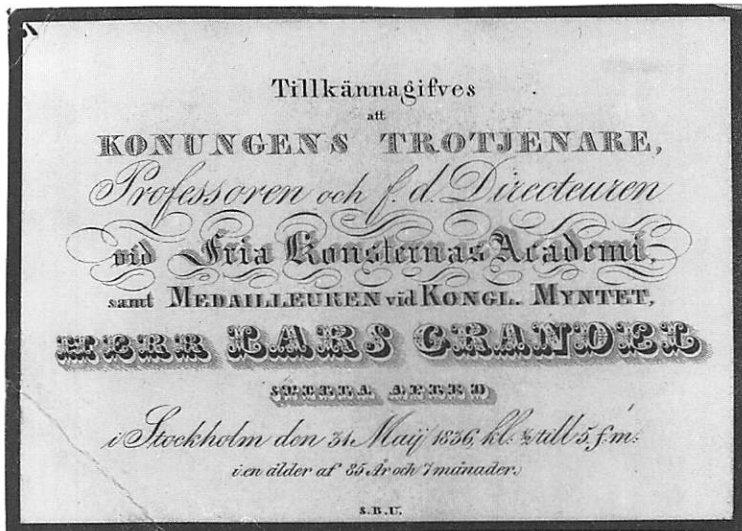 Tillkännagifves
att
KONUNGENS TROTJENARE,
Professoren och f. d. Directeuren
vid Fria Konsternas Academi,
samt MEDAILLEUREN vid KONGL. MYNTET,
HERR LARS GRANDEL
STILLA AFLED
i Stockholm den 31 Maij 1836, kl. ½ till 5 f. m.
i en ålder af 85 År och 7 månader.
S. B. U.